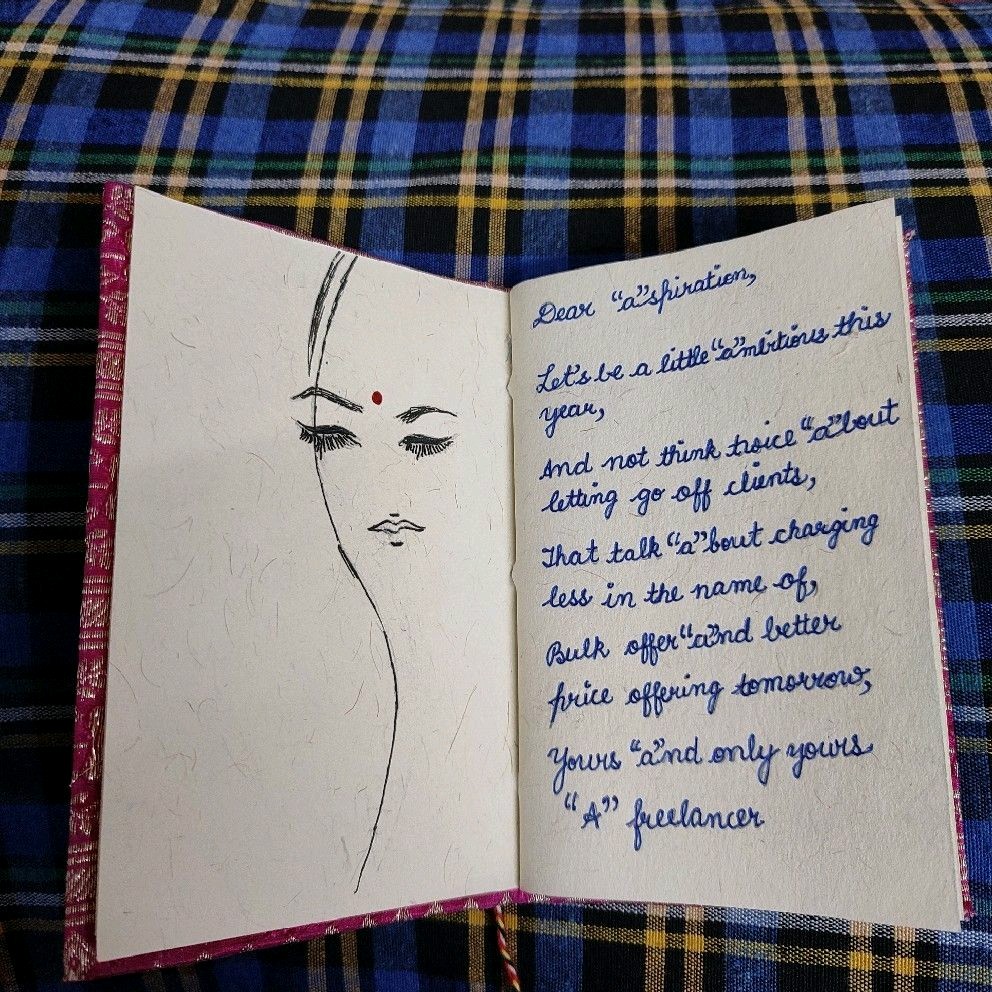 Dear "a"spiration,
Let's be a little "a"mbitious this
year,
And not think twice "a"bout
letting go off clients,
That talk "a"bout charging
less in the name of,
Bulk offer "a"nd better
price offering tomorrow,
Yours "a"nd only yours
"A" freelancer